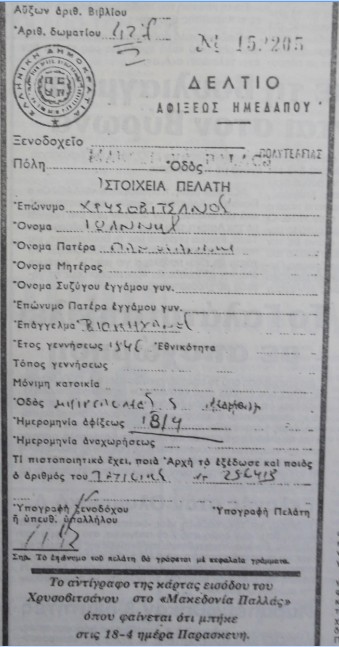 Αὔξων ἀριθ. Βιβλίου
Ἀριθ. δωματίου
№ 152205
ΕΛΛΗΝΙΚΗ ΔΗΜΟΚΡΑΤΙΑ
ΔΕΛΤΙΟ
ΑΦΙΞΕΩΣ ΗΜΕΔΑΠΟΥ
Ξενοδοχεῖο
ΠΟΛΥΤΕΛΕΙΑΣ
Πόλη Ὁδός
ΣΤΟΙΧΕΙΑ ΠΕΛΑΤΗ
Ἐπώνυμο ΧΡΥΣΟΒΙΤΣΑΝΟΣ
Ὄνομα ΙΩΑΝΝΗΣ
Ὄνομα Πατέρα
Ὄνομα Μητέρας
Ὄνομα Συζύγου ἐγγάμου γυν.
Ἐπώνυμο Πατέρα ἐγγάμου γυν.
Ἐπάγγελμα
Ἔτος γεννήσεως Ἐθνικότητα
Τόπος γεννήσεως
Μόνιμη κατοικία
Ὁδός
Ἡμερομηνία ἀφίξεως 18/4
Ἡμερομηνία ἀναχωρήσεως
Τί πιστοποιητικό ἔχει, ποιά Ἀρχή τό ἐξέδωσε καί ποιός
ὁ ἀριθμός του
Ὑπογραφή ξενοδόχου Ὑπογραφή Πελάτη
ἤ ὑπευθ. ὑπαλλήλου
Σημ. Τό ἐπώνυμο τοῦ πελάτη θά γράφεται μέ κεφαλαῖα γράμματα.
Το αντίγραφο της κάρτας εισόδου του
Χρυσοβιτσάνου στο «Μακεδονία Παλλάς»
όπου φαίνεται ότι μπήκε
στις 18-4 ημέρα Παρασκευη.